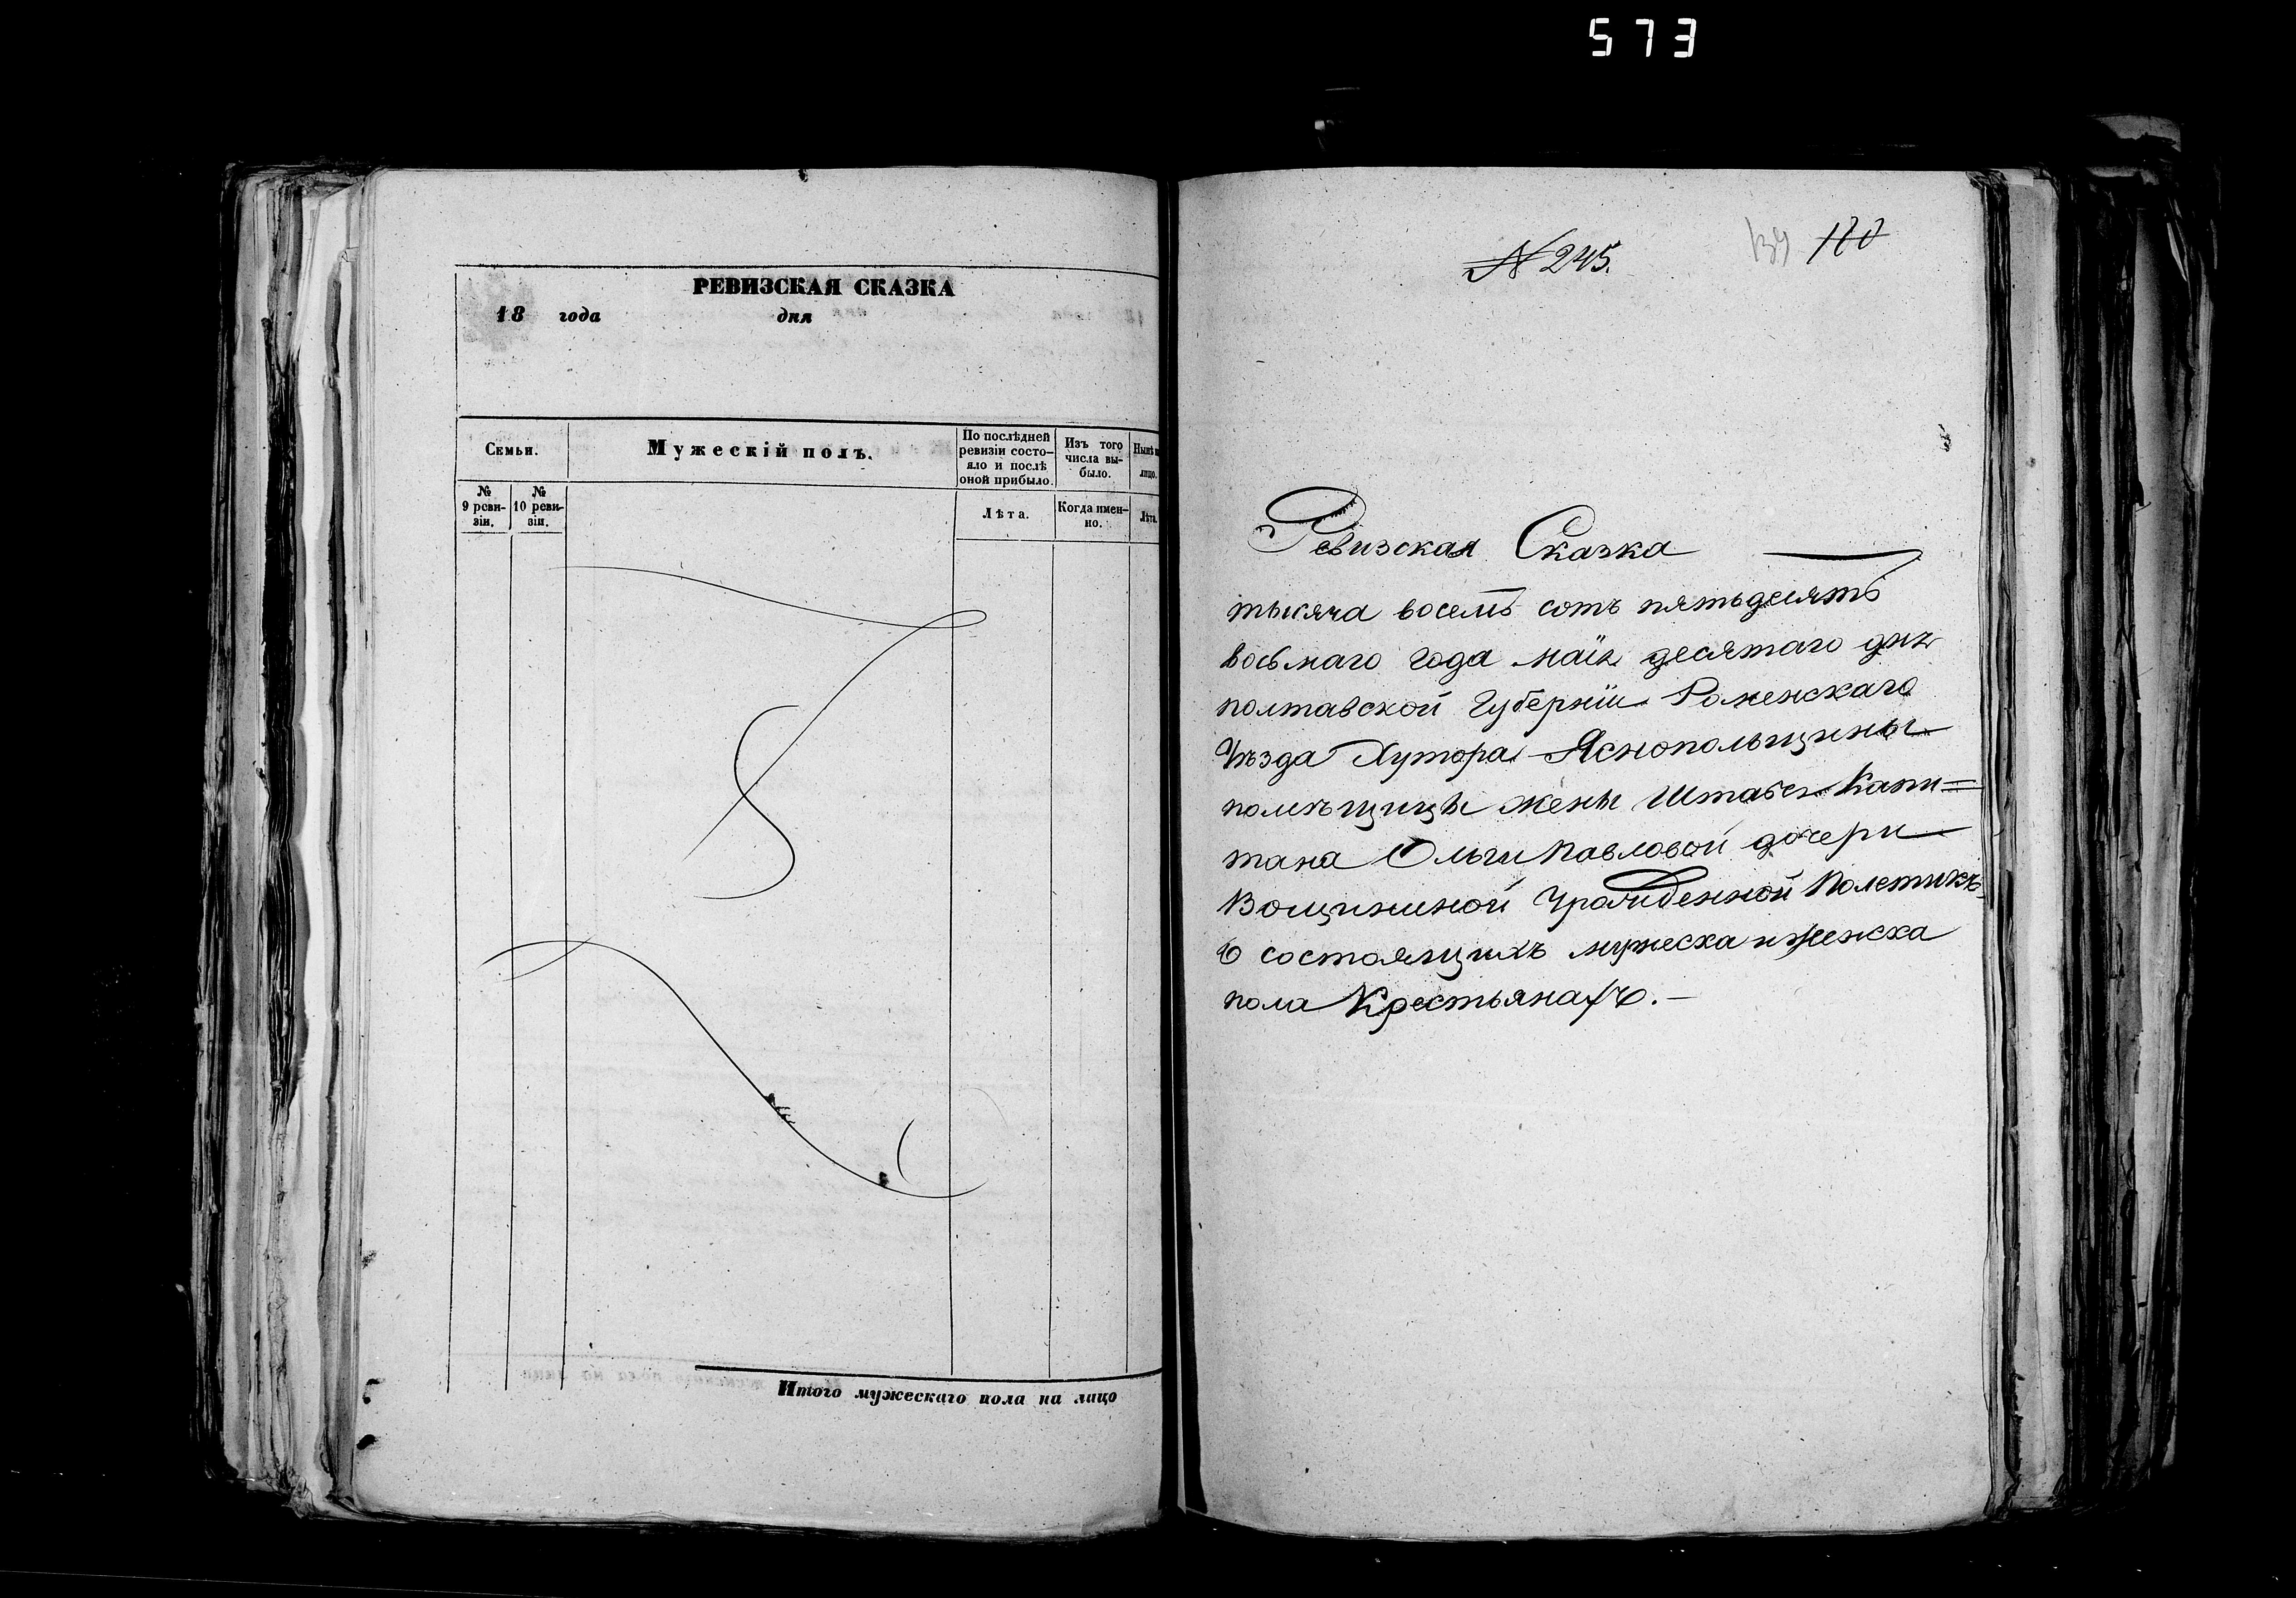 573
РЕВИЗСКАЯ СКАЗКА
18 года дня
Семьи.
Мужескій полъ.
По послѣдней ревизіи состо-
яло и послѣ
оной прибыло.
Изъ того
числа вы-
было.
лицо.
№
9 реви-
зіи.
№
10 реви-
зіи.
Лѣта.
Когда имен-
но.
Лѣта.
Итого мужескаго пола на лицо
№ 245.
139 180
Ревизская Сказка
тысяча восемь сотъ пятьдесятъ
восьмаго года маія десятаго дня
полтавской Губерніи Роменскаго
Уѣзда Хутора Яснопольщины
помѣщицы жены Штабсъ Капи=
тана Ольги Павловой дочери
Вощининой Урожденной Полетикъ
О состоящихъ мужеска и женска
пола Крестьянахъ.—